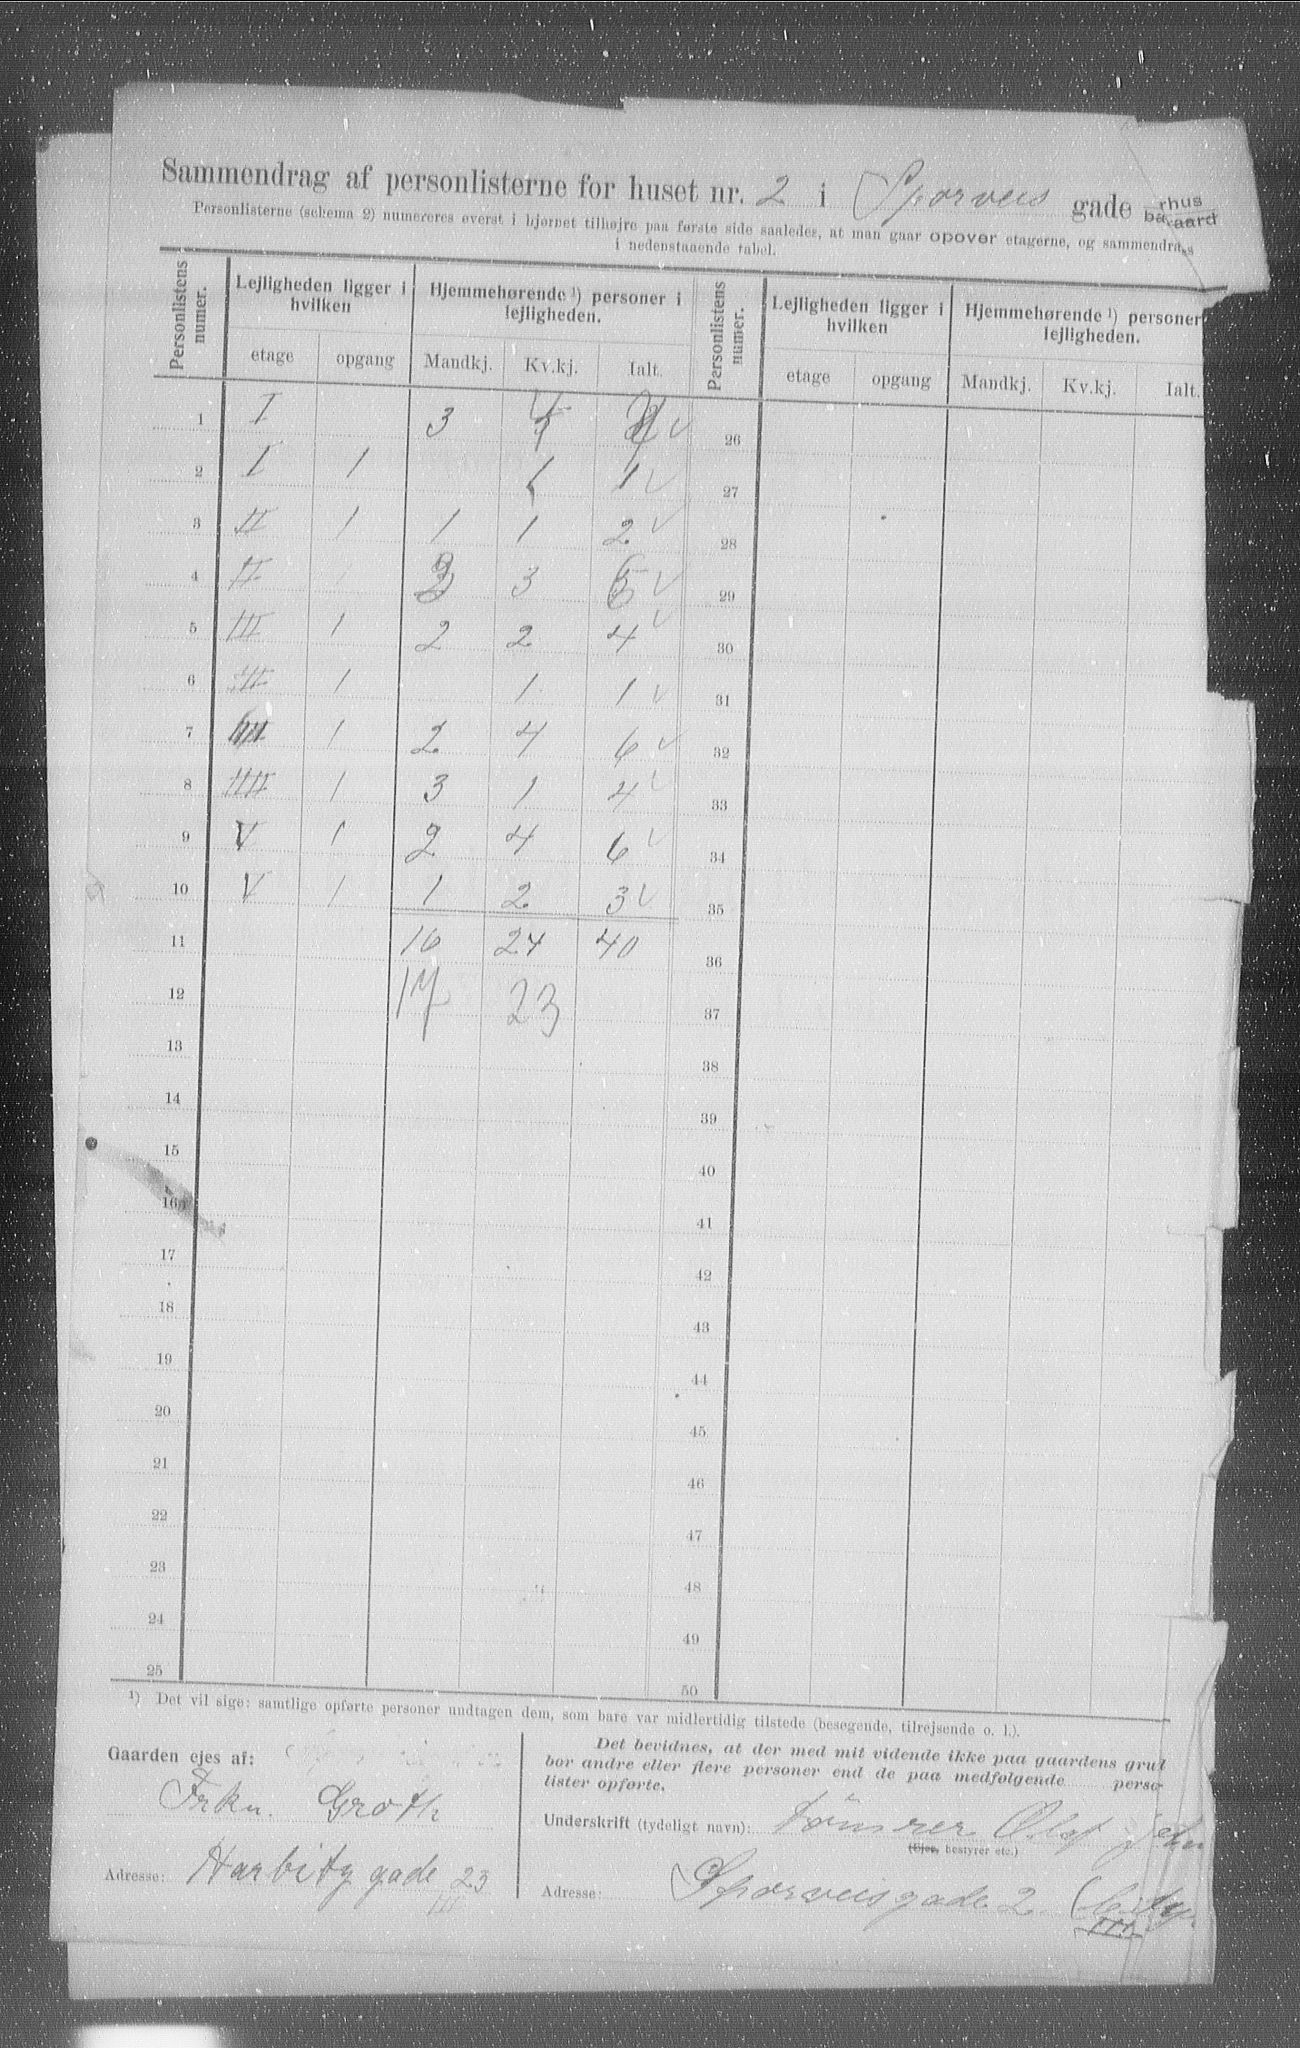 Sammendrag af personlisterne for huset nr. 2 i Sporveis gade
Personlisterne (schema 2) numereres øverst i hjørnet tilhøjre paa første side saaledes, at man gaar opover etagerne, og sammendrages
i nedenstaaende tabel.
Personlistens numer. Lejligheden ligger i hvilken Hjemmehørende ¹) personer i lejligheden. Personlistens numer. Lejligheden ligger i hvilken Hjemmehørende ¹) personer lejligheden.
etage opgang Mandkj. Kv.kj. Ialt. etage opgang Mandkj. Kv.kj. Ialt.
1 I 3 4 26
2 I 1 1 1 27
3 II 1 1 1 2 28
4 II 3 29
5 III 1 2 2 4 30
6 III 1 1 1 31
7 1 2 4 6 32
8 IIII 1 3 1 4 33
9 V 1 2 4 6 34
10 V 1 1 2 3 35
11 16 24 40 36
12 17 23 37
13 38
14 39
15 40
16 41
17 42
18 43
19 44
20 45
21 46
22 47
23 48
24 49
25 50
¹) Det vil sige: samtlige opførte personer undtagen dem, som bare var midlertidig tilstede (besøgende, tilrejsende o. l.).
Gaarden ejes af:
Frkn. Groth
Adresse: Harbitz gade 23
III
Det bevidnes, at der med mit vidende ikke paa gaardens grund
bor andre eller flere personer end de paa medfølgende perso-
lister opførte.
Underskrift (tydeligt navn): Tömrer Olaf
(Ejer, bestyrer etc.)
Adresse: Sporveisgade 2
III